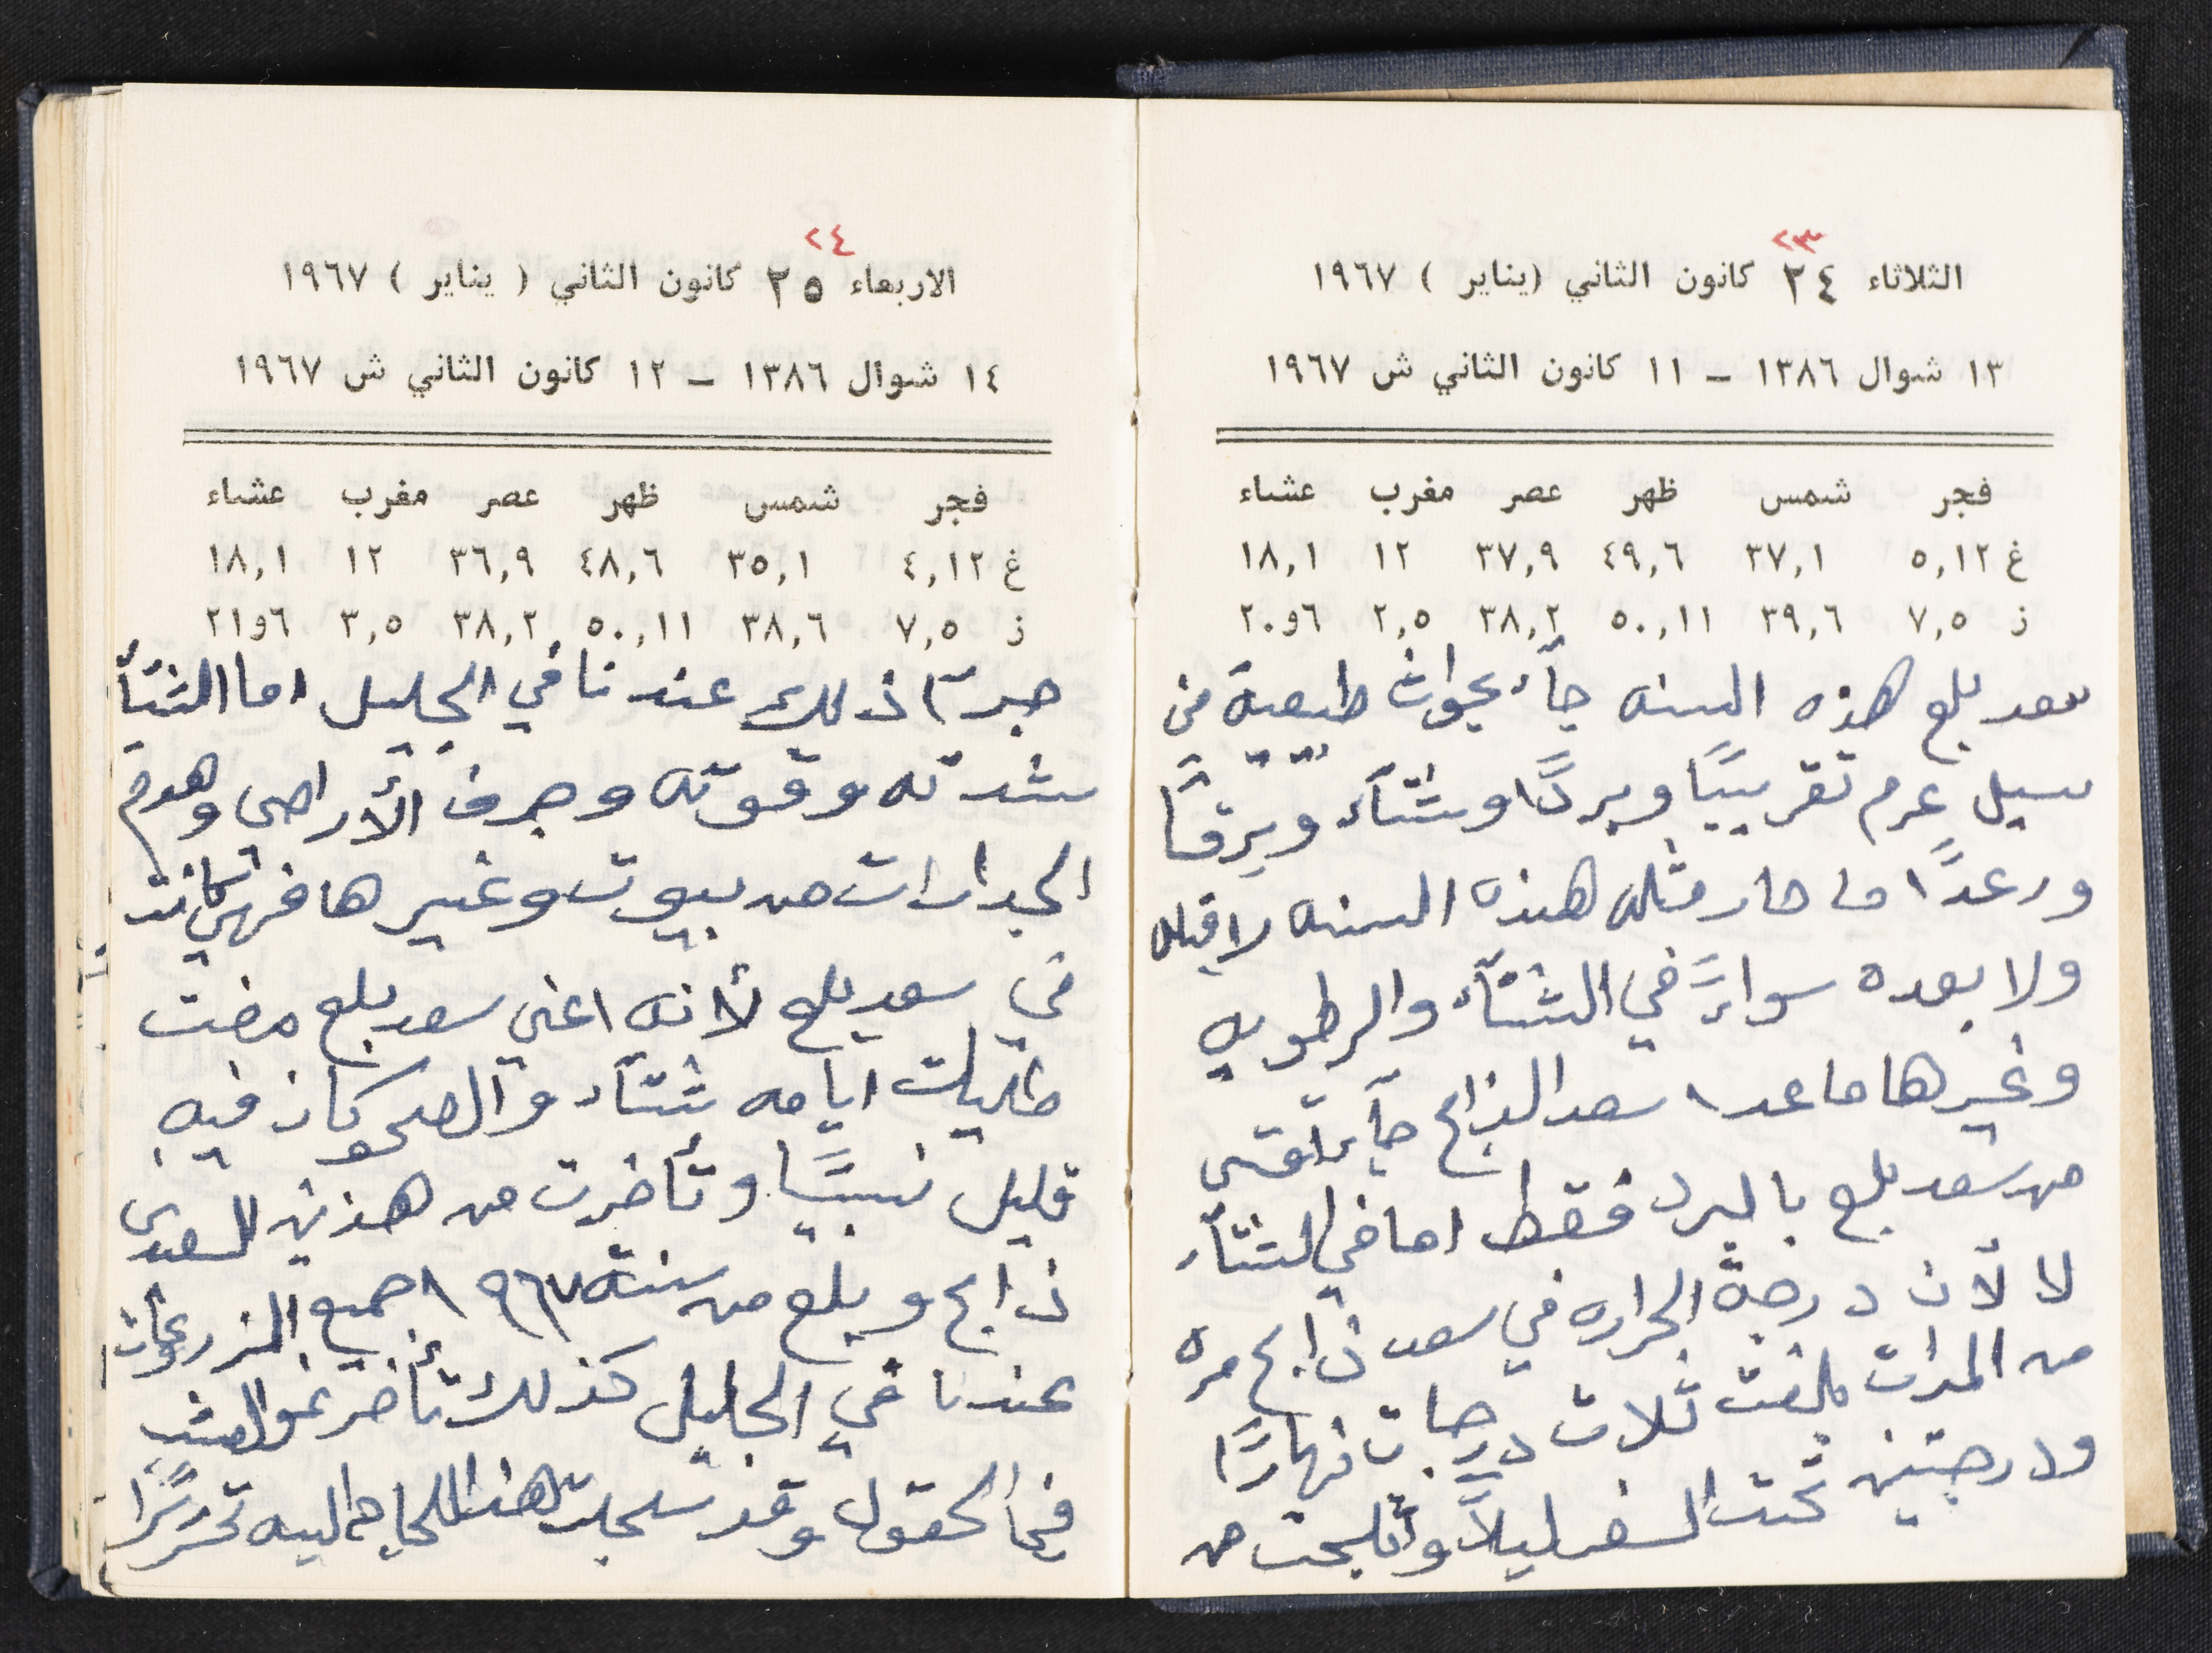 ٢٣
الثلاثاء ٢٤ كانون الثاني (يناير) ١٩٦٧
١٣ شوال ١٣٨٦ – ١١ كانون الثاني ش ١٩٦٧
فجر شمس ظهر عصر مغرب عشاء
غ ٥,١٢ ٣٧,١ ٤٩,٦ ٣٧,٩ ١٢ ١٨,١
ز ٧,٥ ٣٩,٦ ٥٠,١١ ٣٨,٢ ٢,٥ ٦و٢٠
سعد بلع هذه السنه جآء طبيعية من
سيل عرم تقريبًا وبردًا وشتآء وبرقًا
ورعدًا ما صار مثله هذه السنه لا قبله
ولا بعده سواءً في الشتآء والرطوبه
وغيرها ما عدا سعد الذابح جآء اقسى
من سعد بلع بالبرد فقط اما في الشتآء
لا لأن درجة الحراره في سعد ذابح مره
من المرات بلغت ثلاث درجات نهارًا
ودرجتين تحت الصفر ليلاً واثلجت من
٢٤
الاربعاء ٢٥ كانون الثاني ( يناير ) ١٩٦٧
١٤ شوال ١٣٨٦ – ١٢ كانون الثاني ش ١٩٦٧
فجر شمس ظهر عصر مغرب عشاء
غ ٤,١٢ ٣٥,١ ٤٨,٦ ٣٦,٩ ١٢ ١٨,١
ز ٧,٥ ٣٨,٦ ٥٠,١١ ٣٨,٢ ٣,٥ ٦و٢١
ذلك عندنا في الجليل اما الشتآ
شدته وقوته وجرف الأراضي وهدم
الجدارات من بيوت وغيرها فهي كانت
في سعد بلع لأنه اعني سعد بلع مضت
ايامه شتآء والصحو كان فيه
قليل نسبيًا وتأخرت من هذين السعدين
ذابح وبلع من سنة ١٩٦٧ جميع المزروعات
عندنا في الجليل كذلك تأخر نمو العشب
في الحقول وقد سجلت هذا للحاجة اليه تحريرًا